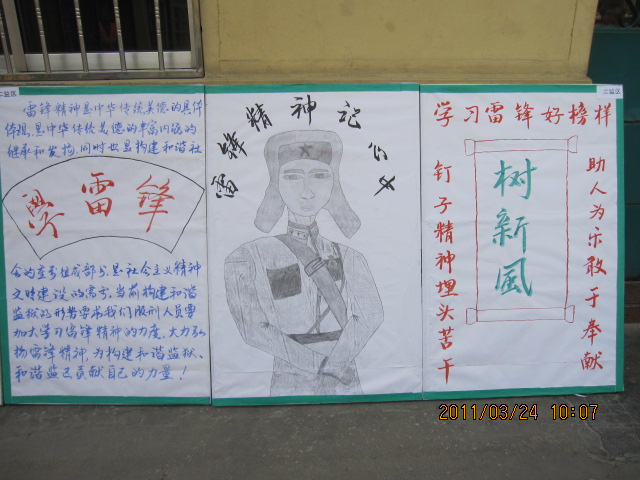 二监区
雷锋精神是中华传统美德的具体
体现,是中华传统美德的丰富内涵的
继承和发扬,同时也是构建和谐社
學雷锋
会的重要组成部分,是社会主义精神
文明建设的需要,当前构建和谐
监狱的形势要求我们服刑人员要
加大学习雷锋精神的力度,大力弘
扬雷锋精神,为构建和谐监狱、
和谐监区贡献自己的力量!
雷锋精神记心中
三监区
学习雷锋好榜样
钉子精神埋头苦干
树新風
助人为乐敢于奉献
2011/03/24 10:07